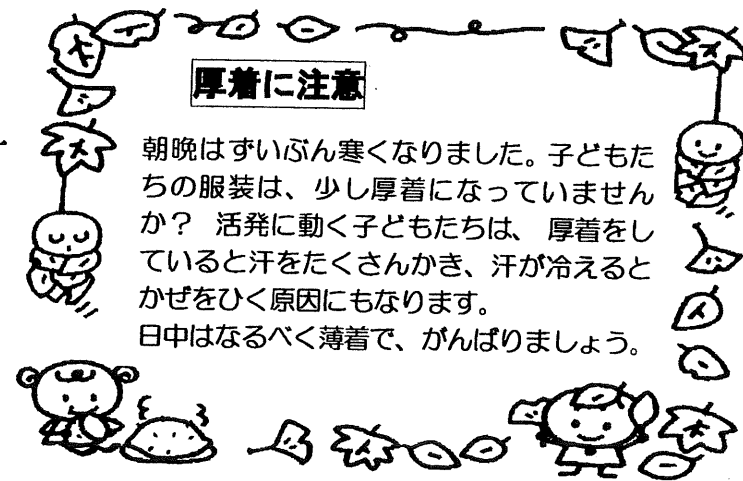 厚着に注意
朝晩はずいぶん寒くなりました。子どもた
ちの服装は、少し厚着になっていません
か？ 活発に動く子どもたちは、厚着をし
ていると汗をたくさんかき、汗が冷えると
かぜをひく原因にもなります。
日中はなるべく薄着で、がんばりましょう。